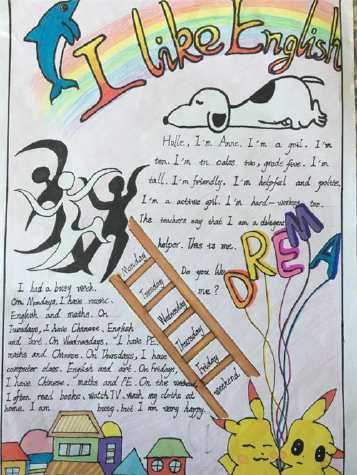 I like English
Hello, I'm Anne. I'm a girl. I'm
ten. I'm in calss two, grade five. I'm
tall. I'm friendly. I'm helpful and polite.
I'm a active girl. I'm hard-working too.
The teachers say that I am a
helper. This is me.
Do you like
me?
DREAM
Monday
Tuesday
Wednesday
Thursday
Friday
weekend
I had a busy week.
On Mondays, I have music
English and maths. On
Tuesdays, I have Chinese, English
and art. On Wednesdays, I have PE
maths and Chinese. On Thursdays, I have
computer class, English and art. On Fridays,
I have Chinese, maths and PE. On the weekend
I often read books, watch TV, wash my cloths at
home. I am busy, but I am very happy.